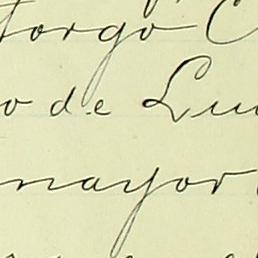 torgo C
o de Lui
mayor